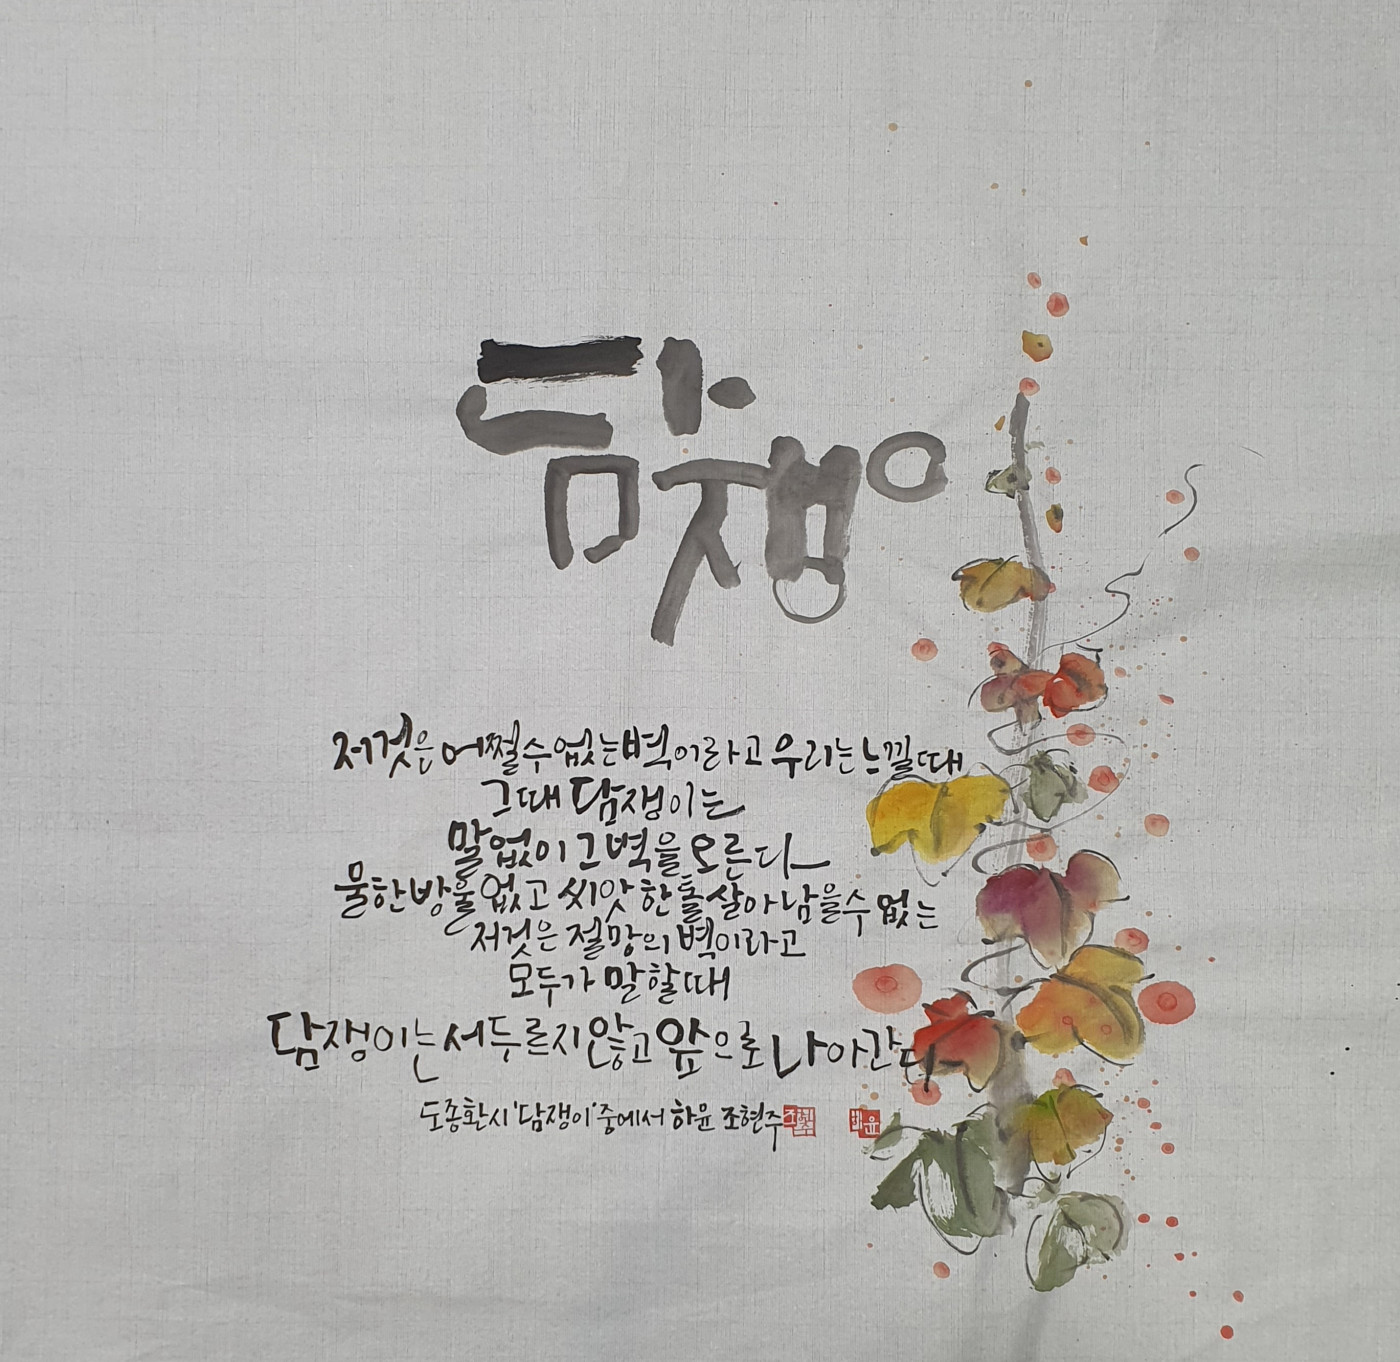 담쟁이
저것은 어쩔수 없는 벽이라고 우리는 느낄때
그때 담쟁이는
말없이 그 벽을 오른다
물 한방울 없고 씨앗 한톨 살아남을수 없는
저것은 절망의 벽이라고
모두가 말할때
담쟁이는 서두르지 않고 앞으로 나아간다
도종환시 '담쟁이' 중에서 하윤 조현주 조현주 하윤